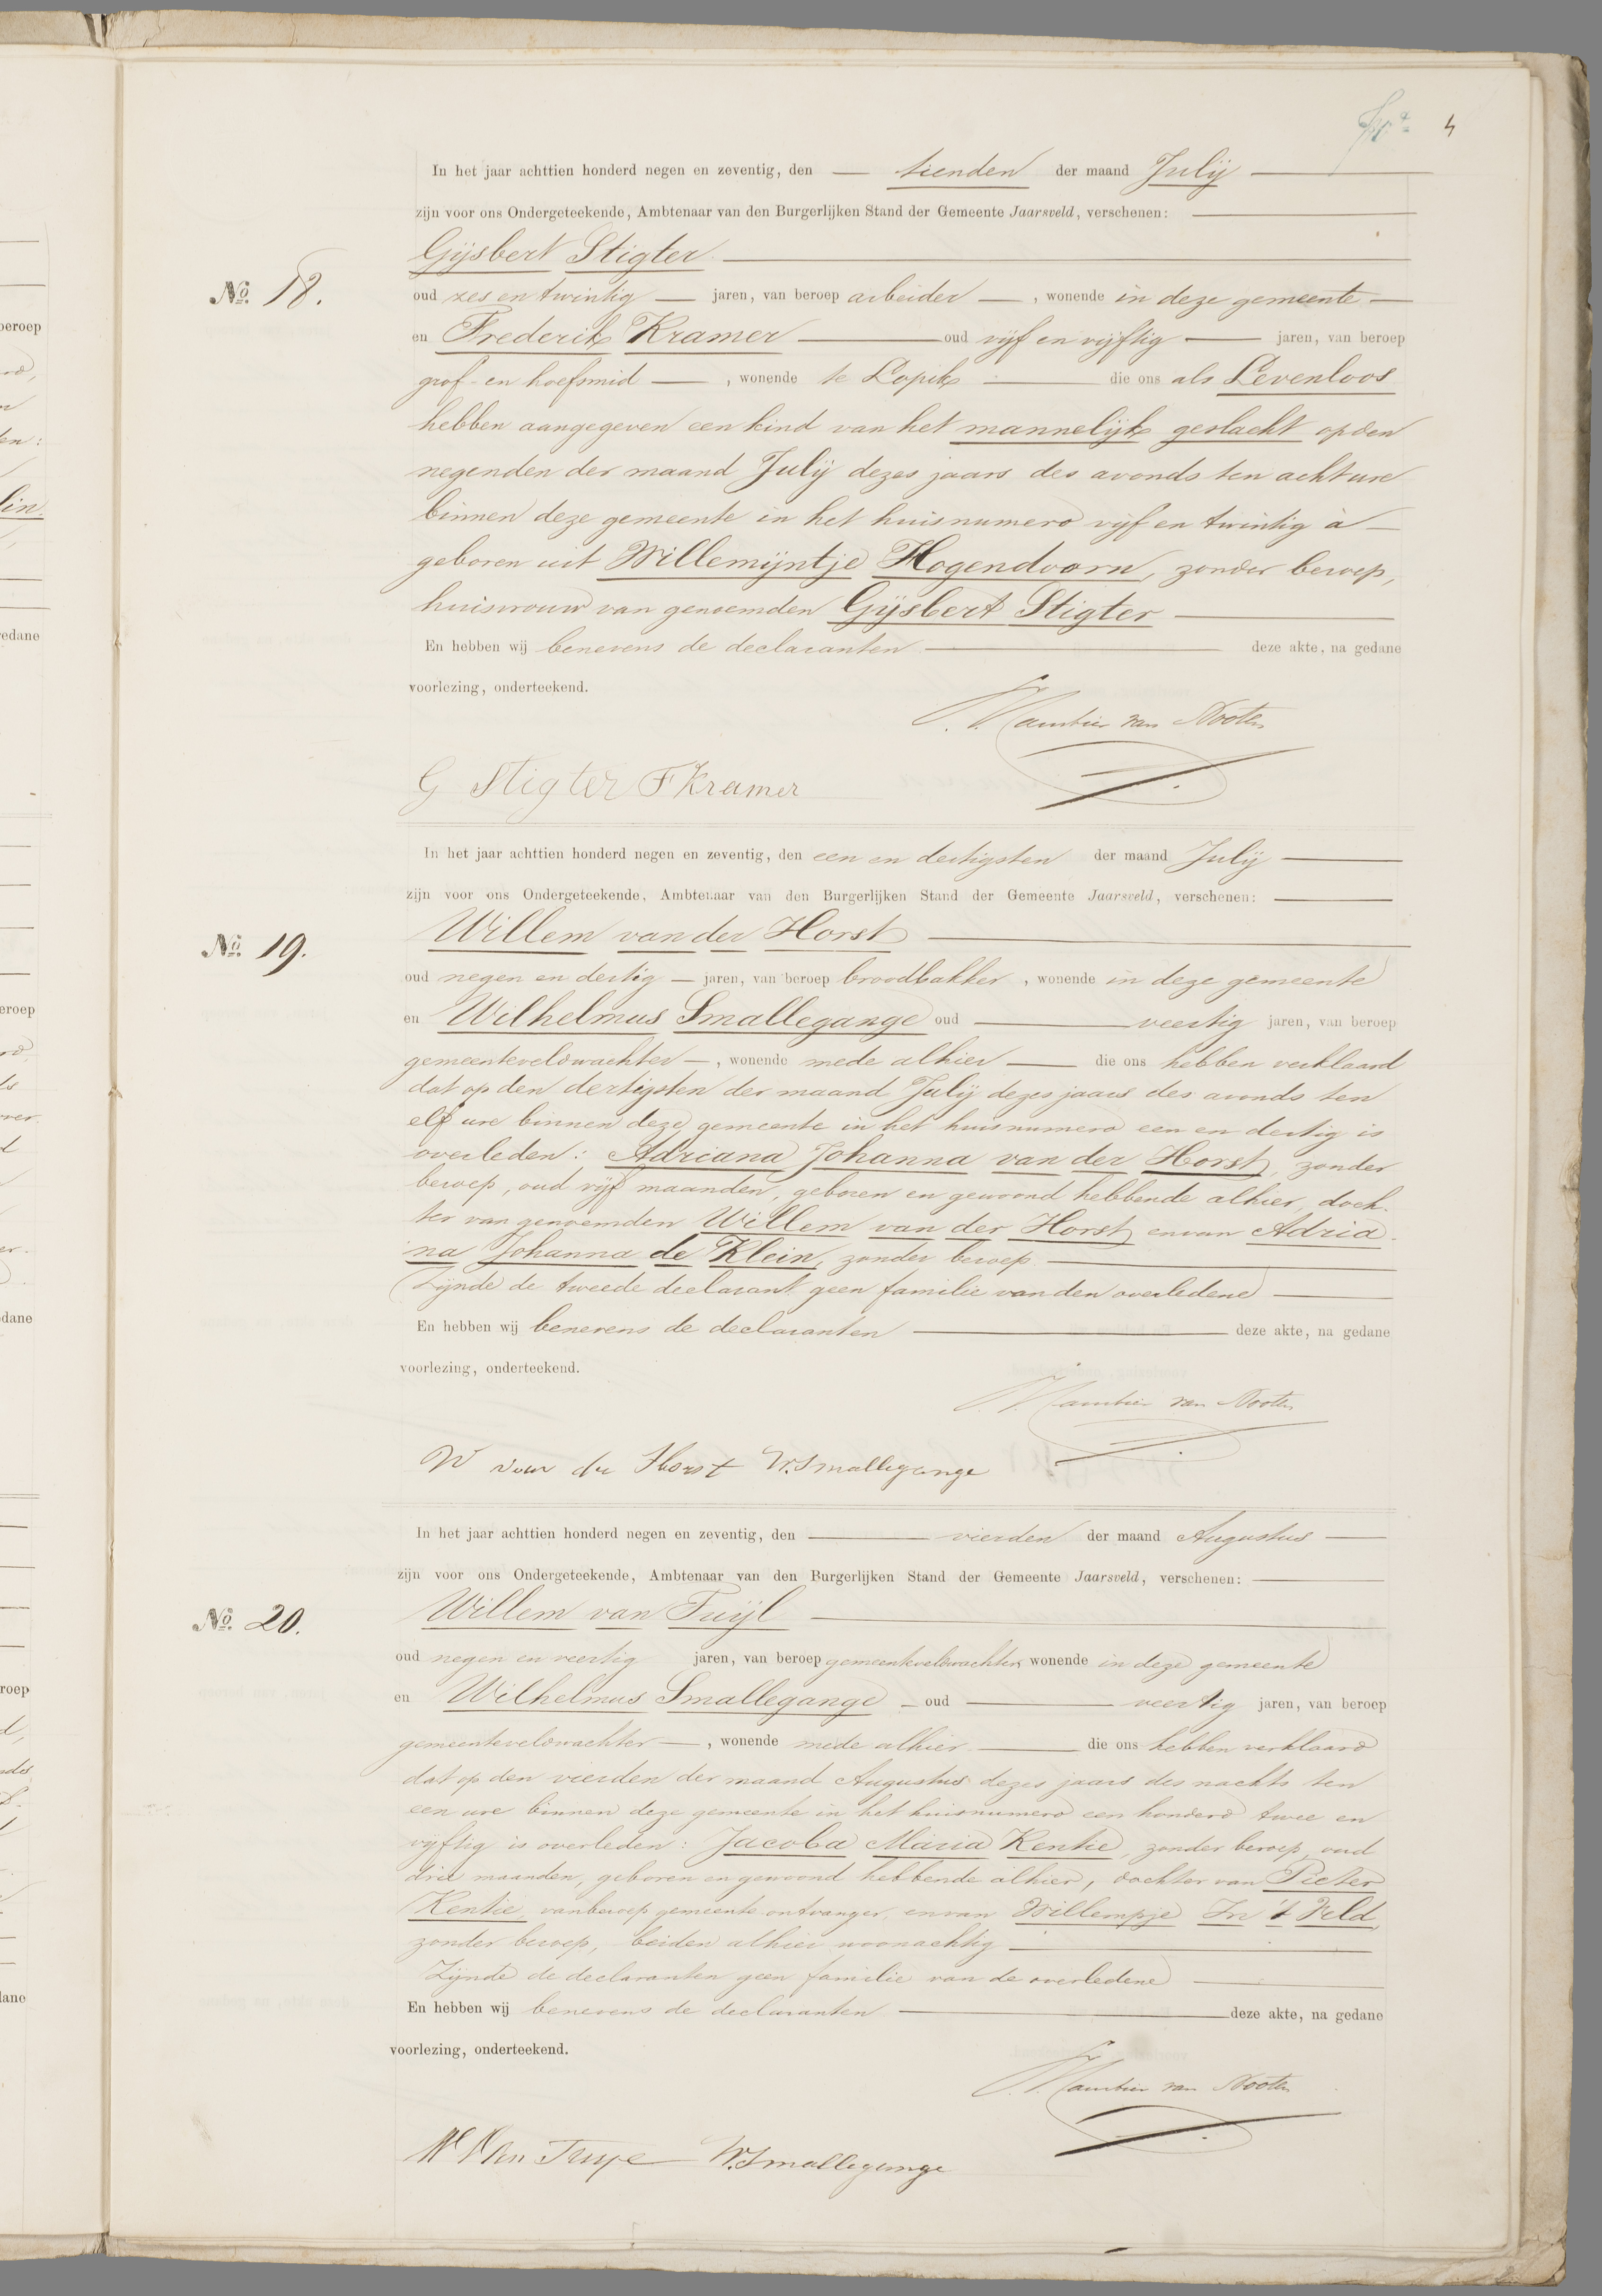 4
In het jaar achttien honderd negen en zeventig, den — tienden der maand Julij —
zijn voor ons Ondergeteekende, Ambtenaar van den Burgerlijken Stand der Gemeente Jaarsveld, verschenen: —
Gijsbert Stigter —
No. 18.
oud zes en twintig — jaren, van beroep arbeider —, wonende in deze gemeente —
en Frederik Kramer — oud vijf en vijftig — jaren, van beroep
grof- en hoefsmid —, wonende te Lopik — die ons als Levenloos
hebben aangegeven een kind van het mannelijk geslacht op den
negenden der maand Julij dezes jaars des avonds ten acht ure
binnen deze gemeente in het huisnumero vijf en twintig a —
geboren uit Willemijntje Hogendoorn, zonder beroep,
huisvrouw van genoemden Gijsbert Stigter —
En hebben wij benevens de declaranten — deze akte, na gedane
voorlezing, onderteekend.
van Nooten
G Stigter F Kramer
In het jaar achttien honderd negen en zeventig, den een en dertigsten der maand Julij —
zijn voor ons Ondergeteekende, Ambtenaar van den Burgerlijken Stand der Gemeente Jaarsveld, verschenen: —
Willem van der Horst —
No. 19.
oud negen en dertig — jaren, van beroep broodbakker, wonende in deze gemeente
en Wilhelmus Smallegange oud — veertig jaren, van beroep
gemeenteveldwachter —, wonende mede alhier — die ons hebben verklaard
dat op den dertigsten der maand Julij dezes jaars des avonds ten
elf ure binnen deze gemeente in het huisnumero een en dertig is
overleden: Adriana Johanna van der Horst, zonder
beroep, oud vijf maanden, geboren en gewoond hebbende alhier, doch-
ter van genoemden Willem van der Horst en van Adria-
na Johanna de Klein, zonder beroep —
Zijnde de tweede declarant geen familie van den overledene —
En hebben wij benevens de declaranten — deze akte, na gedane
voorlezing, onderteekend.
van Nooten
W van der Horst W. Smallegange
In het jaar achttien honderd negen en zeventig, den — vierden der maand Augustus —
zijn voor ons Ondergeteekende, Ambtenaar van den Burgerlijken Stand der Gemeente Jaarsveld, verschenen: —
Willem van Tuijl —
No. 20.
oud negen en veertig jaren, van beroep gemeenteveldwachter, wonende in deze gemeente
en Wilhelmus Smallegange — oud — veertig jaren, van beroep
gemeenteveldwachter —, wonende mede alhier — die ons hebben verklaard
dat op den vierden der maand Augustus dezes jaars des nachts ten
een ure binnen deze gemeente in het huisnumero een honderd twee en
vijftig is overleden: Jacoba Maria Kentie, zonder beroep, oud
drie maanden, geboren en gewoond hebbende alhier, dochter van Pieter
Kentie, van beroep gemeente-ontvanger, en van Willempje In 't Veld,
zonder beroep, beiden alhier woonachtig —
Zijnde de declaranten geen familie van de overledene —
En hebben wij benevens de declaranten — deze akte, na gedane
voorlezing, onderteekend.
van Nooten
W Van Tuyl W. Smallegange